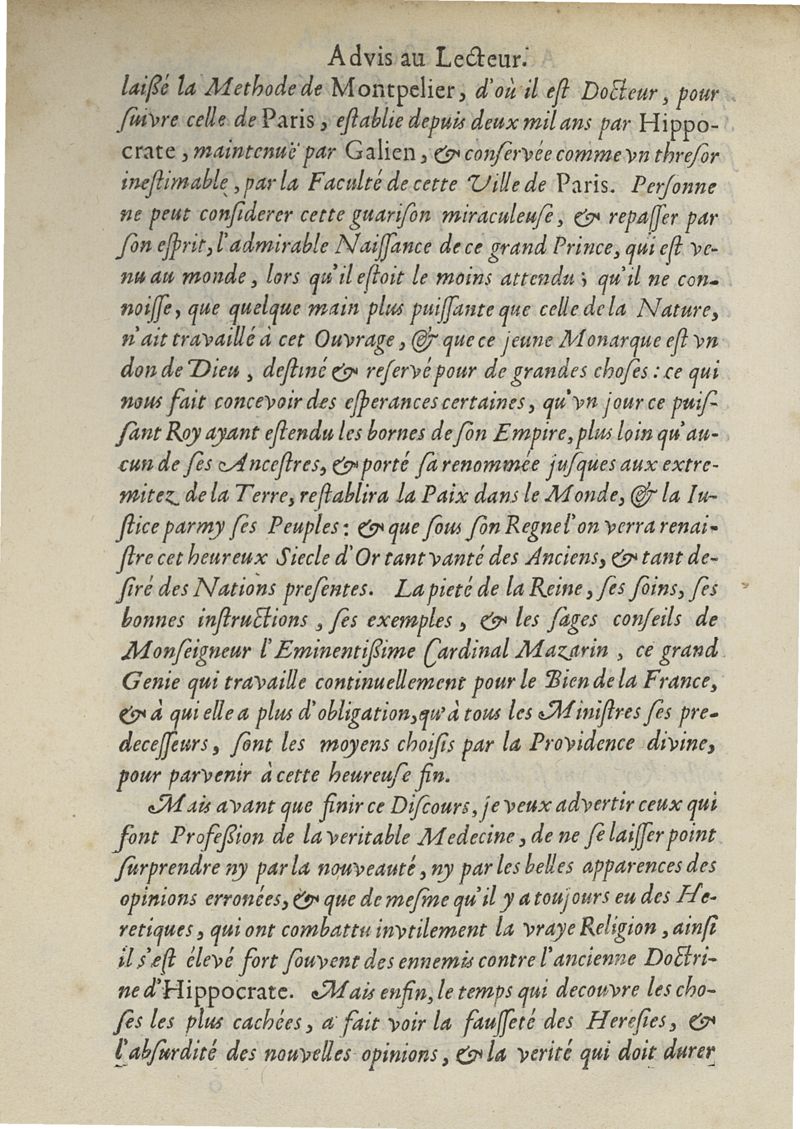 Advis au Lecteur.
laißé la Methode de Montpelier, d'où il eſt Docteur, pour
ſuivre celle de Paris, eſtablie depuis deux mil ans par Hippo-
crate, maintenuë par Galien, & conſervée comme vn threſor
ineſtimable, par la Faculté de cette Ville de Paris. Perſonne
ne peut conſiderer cette guariſon miraculeuſe, & repaſſer par
ſon eſprit, l'admirable Naiſſance de ce grand Prince, qui eſt ve-
nu au monde, lors qu'il eſtoit le moins attendu; qu'il ne con-
noiſſe, que quelque main plus puiſſante que celle de la Nature,
n'ait travaillé à cet Ouvrage, & que ce jeune Monarque eſt vn
don de Dieu, deſtiné & reſervé pour de grandes choſes: ce qui
nous fait concevoir des eſperances certaines, qu'vn jour ce puiſ-
ſant Roy ayant eſtendu les bornes de ſon Empire, plus loin qu'au-
cun de ſes Anceſtres, & porté ſa renommée juſques aux extre-
mitez de la Terre, reſtablira la Paix dans le Monde, & la Iu-
ſtice parmy ſes Peuples: & que ſous ſon Regne l'on verra renai-
ſtre cet heureux Siecle d'Or tant vanté des Anciens, & tant de-
ſiré des Nations preſentes. La pieté de la Reine, ſes ſoins, ſes
bonnes inſtructions, ſes exemples, & les ſages conſeils de
Monſeigneur l'Eminentißime Cardinal Mazarin, ce grand
Genie qui travaille continuellement pour le Bien de la France,
& à qui elle a plus d'obligation, qu'à tous les Miniſtres ſes pre-
deceſſeurs, ſont les moyens choiſis par la Providence divine,
pour parvenir à cette heureuſe fin.
Mais avant que finir ce Diſcours, je veux advertir ceux qui
font Profeßion de la veritable Medecine, de ne ſe laiſſer point
ſurprendre ny par la nouveauté, ny par les belles apparences des
opinions erronées, & que de meſme qu'il y a toujours eu des He-
retiques, qui ont combattu invtilement la vraye Religion, ainſi
il s'eſt élevé fort ſouvent des ennemis contre l'ancienne Doctri-
ne d'Hippocrate. Mais enfin, le temps qui decouvre les cho-
ſes les plus cachées, a fait voir la fauſſeté des Hereſies, &
l'abſurdité des nouvelles opinions, & la verité qui doit durer